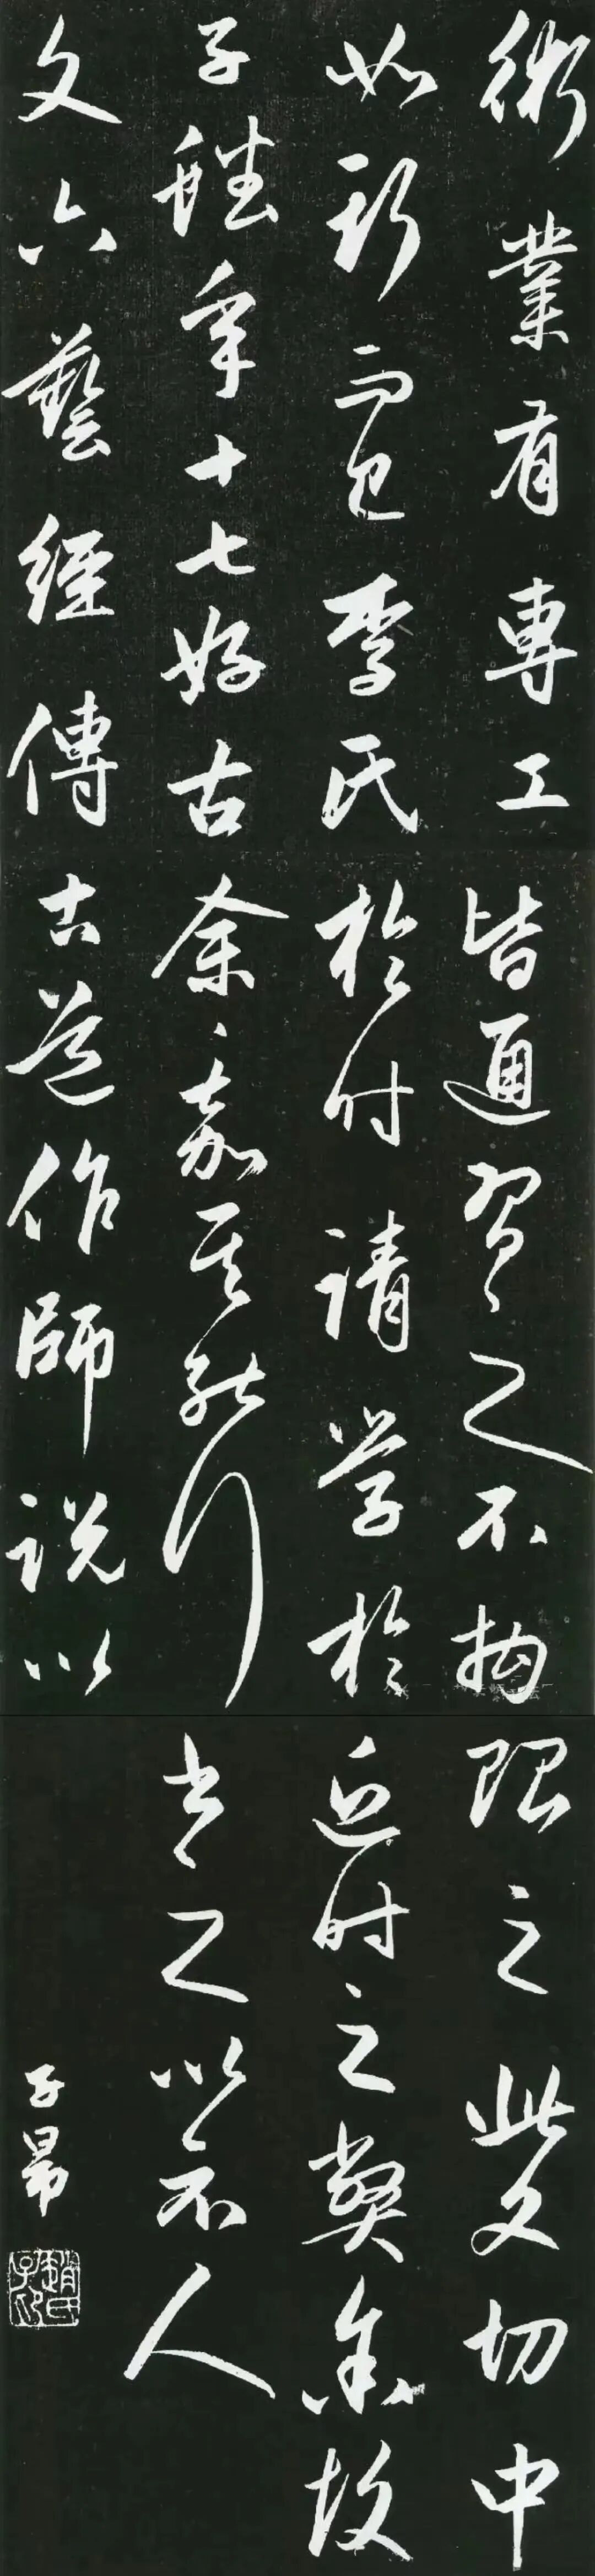 術業有專工
如斯而已李氏
子蟠年十七好古
文六藝經傳
皆通習之不拘
於时請学於
余〻嘉其能行
古道作師說以
貽之此文切中
近时之獘余故
書之以示人
子昂
趙氏子昂